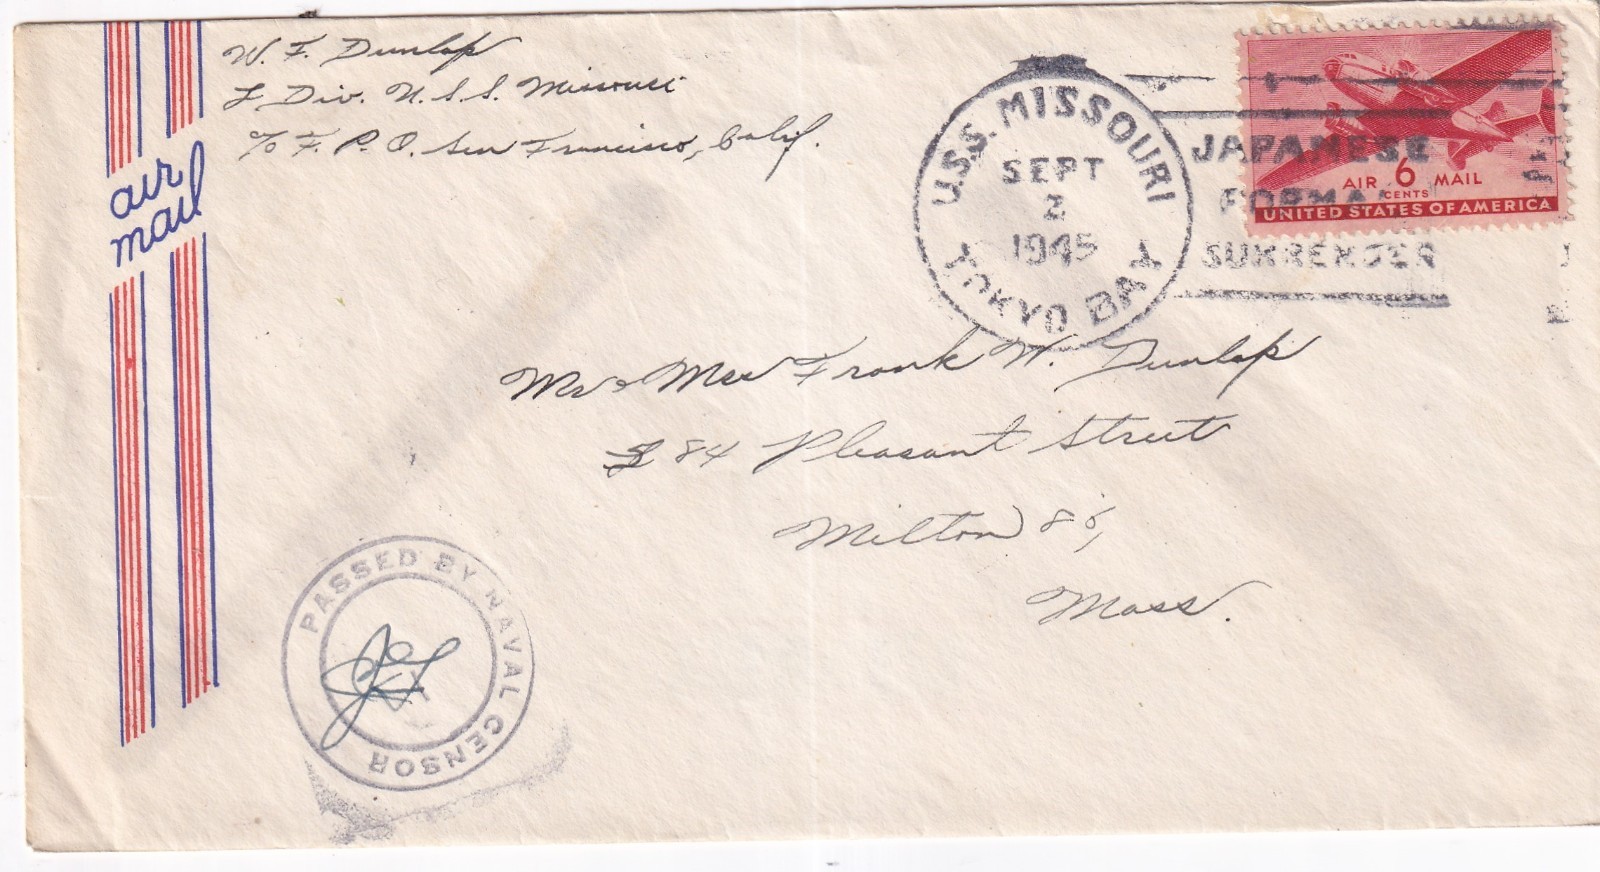 W. F. Dunlap
L Div. U.S.S. Missouri
c/o F. P. O. San Francisco, Calif.
air
mail
U.S.S. MISSOURI
SEPT
2
1945
TOKYO BAY
JAPANESE
FORMAL
SURRENDER
AIR 6 MAIL
CENTS
UNITED STATES OF AMERICA
Mr & Mrs Frank W. Dunlap
84 Pleasant Street
Milton 86,
Mass.
PASSED BY NAVAL CENSOR